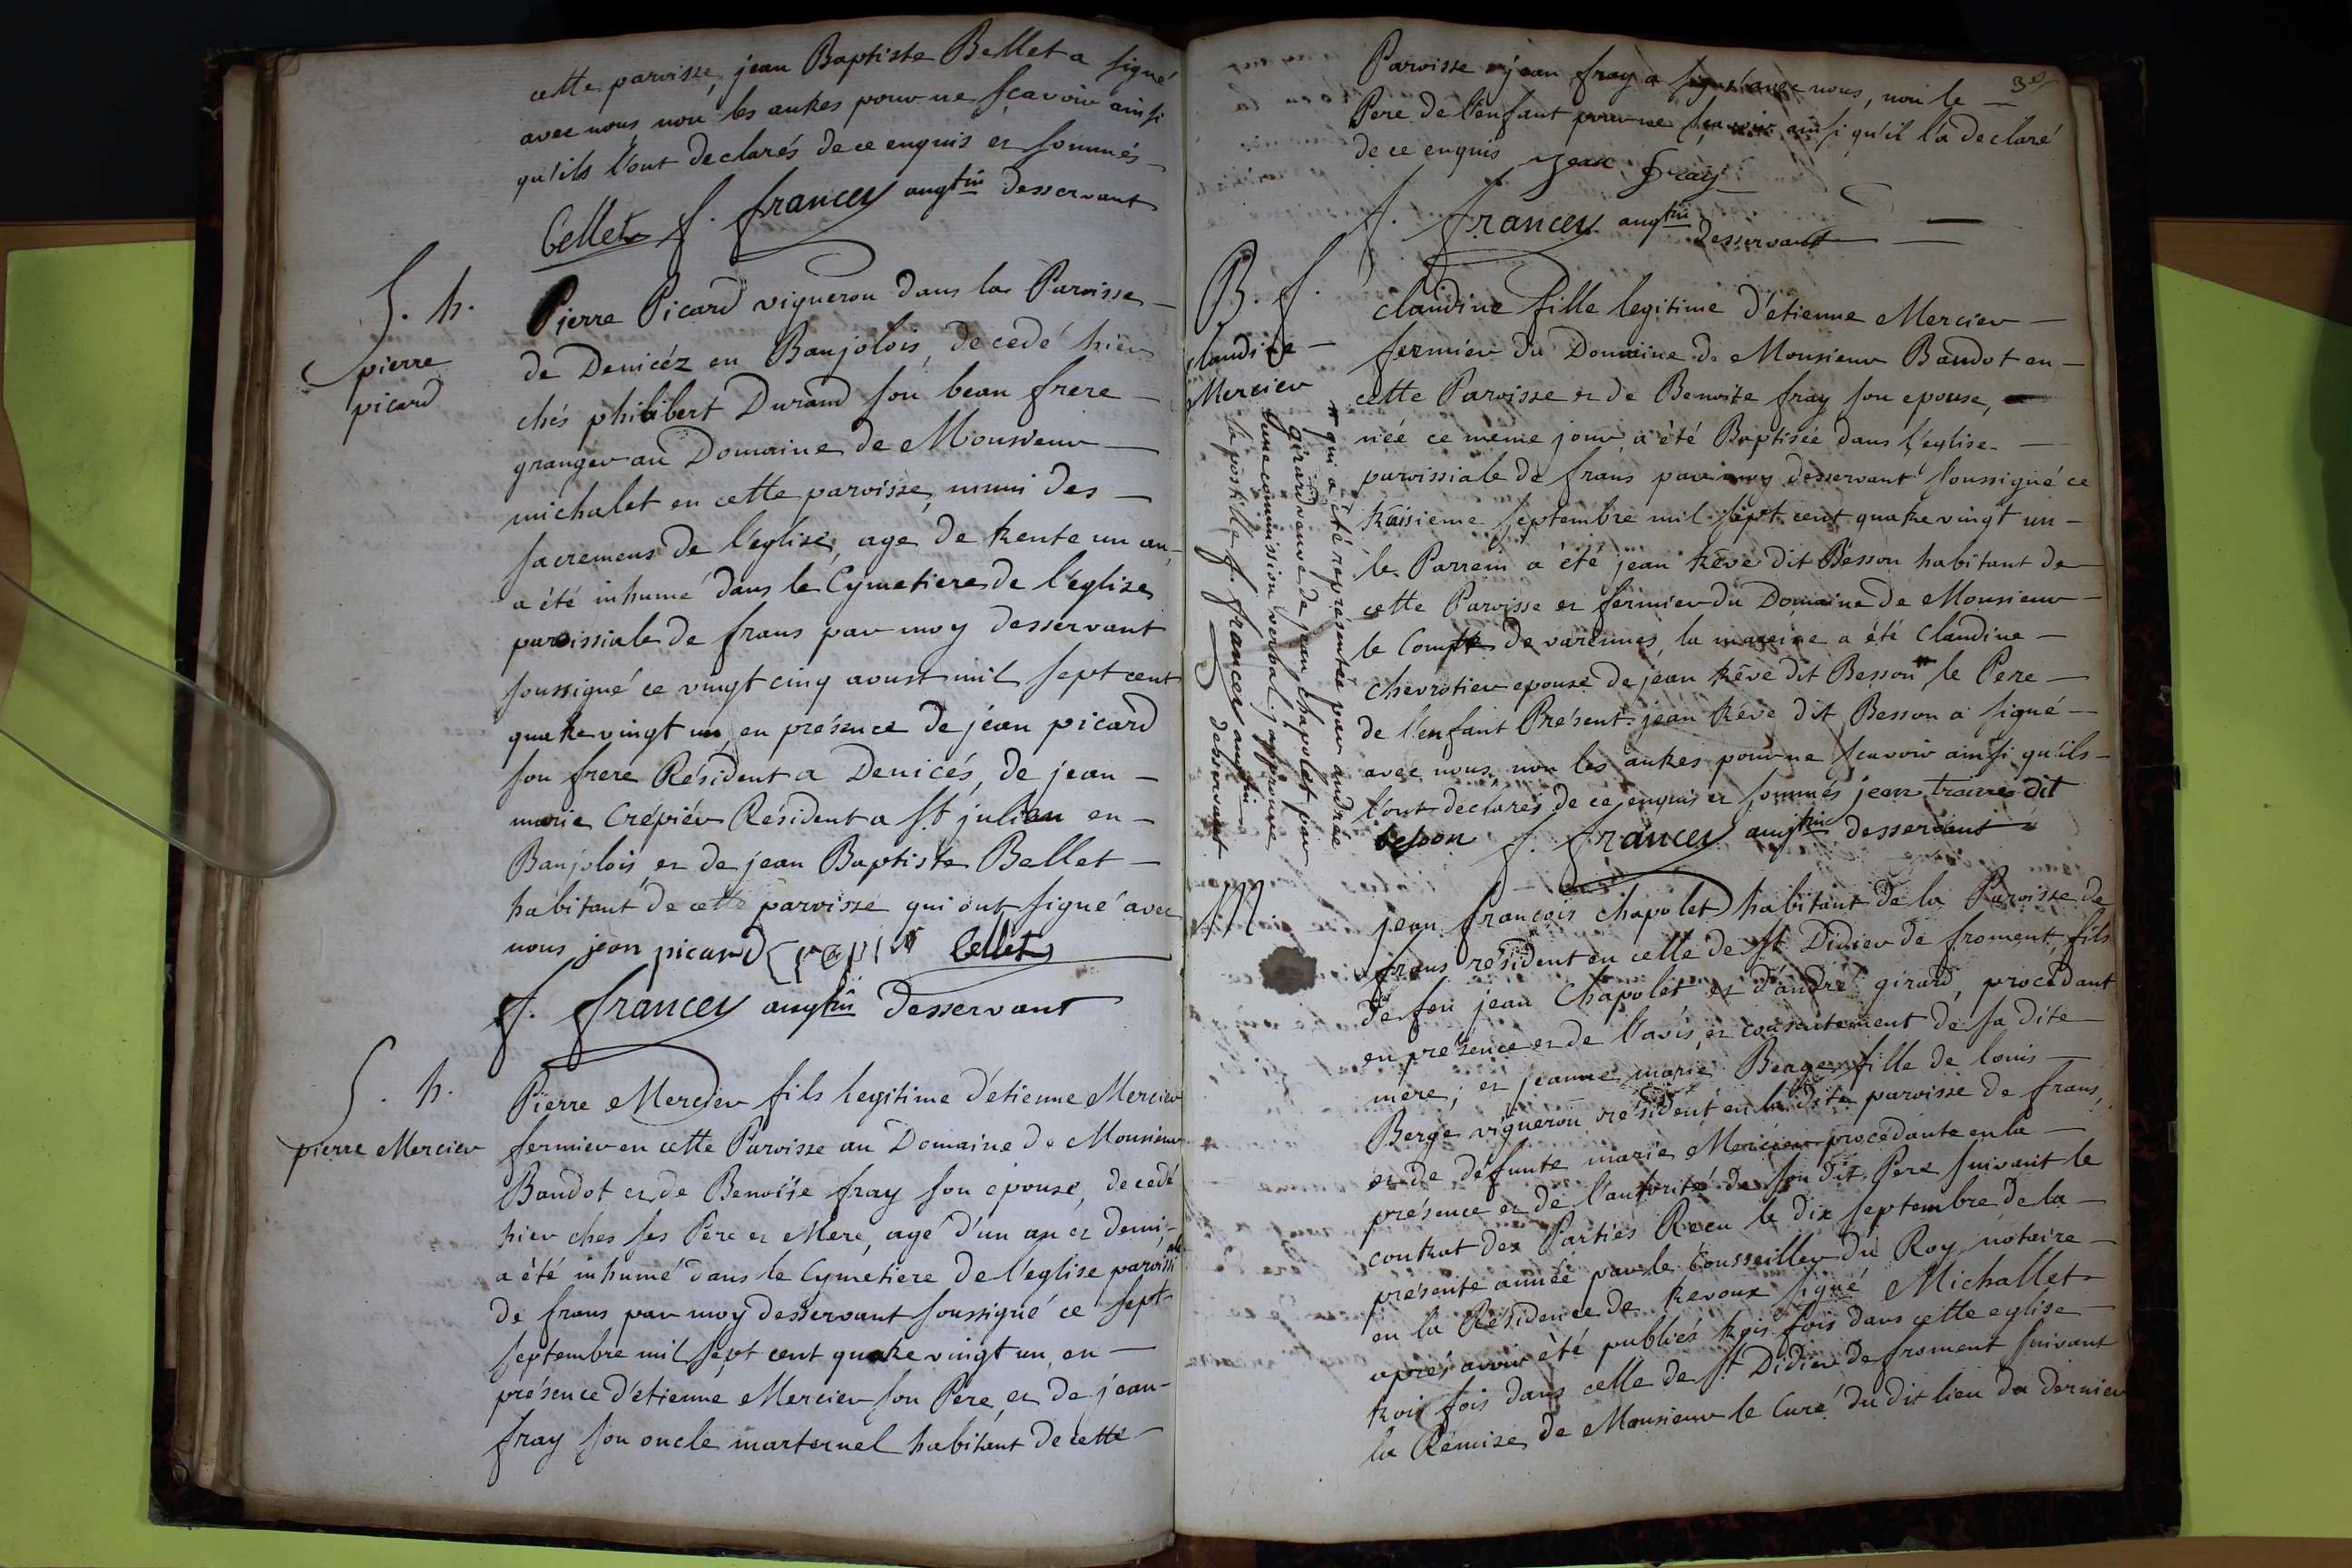 cette paroisse, jean Baptiste Bellet a signé
avec nous non les autres pour ne sçavoir ainsi
qu'ils l'ont declarés de ce enquis et sommés
Bellet f. francey augtin desservant
S. h.
pierre
picard
Pierre Picard vigneron dans la Paroisse
de Denicéz en Baujolois, decedé hier
chés philibert Durand son beau frere
granger au Domaine de Monsieur
michalet en cette paroisse, muni des
sacremens de l'eglise, agé de trente un an,
a été inhumé dans le Cymetiere de l'eglise
paroissiale de frans par moy desservant
soussigné ce vingt cinq aoust mil sept cent
quatre vingt un, en présence de jean picard
son frere Résident a Denicés, de jean
marie Crépiér Résident a St julien en
Baujolois et de jean Baptiste Bellet
habitant de cette paroisse qui ont signé avec
nous jean picard Bellet
f. francey augtin Desservant
S. h.
pierre Mercier
Pierre Mercier fils legitime d'etienne Mercier
fermier en cette Paroisse au Domaine de Monsieur
Baudot et de Benoite fray son epouse, decedé
hier ches ses Pere et Mere, agé d'un an et demi,
a été inhumé dans le Cymetiere de l'eglise paroissiale
de frans par moy desservant soussigné ce sept
septembre mil sept cent quatre vingt un, en
présence d'etienne Mercier son Pere, et de jean
fray son oncle marternel habitant de cette
39
Paroisse jean fray a signé avec nous, non le
Pere de l'enfant pour ne sçavoir ainsi qu'il l'a declaré
de ce enquis jean fray
f. francey augtin desservant
B. f.
claudine
Mercier
claudine fille legitime d'étienne Mercier
fermier du Domaine de Monsieur Baudot en
cette Paroisse et de Benoite fray son epouse,
néé ce meme jour a été Baptisée dans l'église
paroissiale de frans par moy desservant soussigné ce
troisieme septembre mil sept cent quatre vingt un
le Parrein a été jean trêve dit Besson habitant de
cette Paroisse et fermier du Domaine de Monsieur
le Compte de varennes, la mareine a été Claudine
Chevrotier epouse de jean trêve dit Besson le Pere
de l'enfant Présent. jean trêve dit Besson a signé
avec nous, non les autres pour ne sçavoir ainsi qu'ils
l'ont declarés de ce enquis et sommés jean traive dit
besson f. francey augtin desservant
qui a été representée par andrée
girard veuve de jean chapolet par
une commission verbal j'approuve
la postille f. francey augtin desservant
M
jean françois chapolet habitant de la Paroisse de
frans résident en celle de St Didier de froment, fils
de feu jean Chapolet et d'andré girard, procédant
en présence et de l'avis, et consentement de sa dite
mere; et jeanne marie Berge fille de louis
Berge vigneron résident en la dite paroisse de frans,
et de défunte marie Mercier procédante en la
présence et de l'autorité de son dit Pere suivant le
contrat des Parties Recu le dix septembre de la
présente année par le Consseiller du Roy notaire
en la Résidence de trevoux signé Michallet
aprés avoir été publiés trois fois dans cette eglise
trois fois dans celle de St Didier de froment suivant
la Remise de Monsieur le Curé du dit lieu du dernier